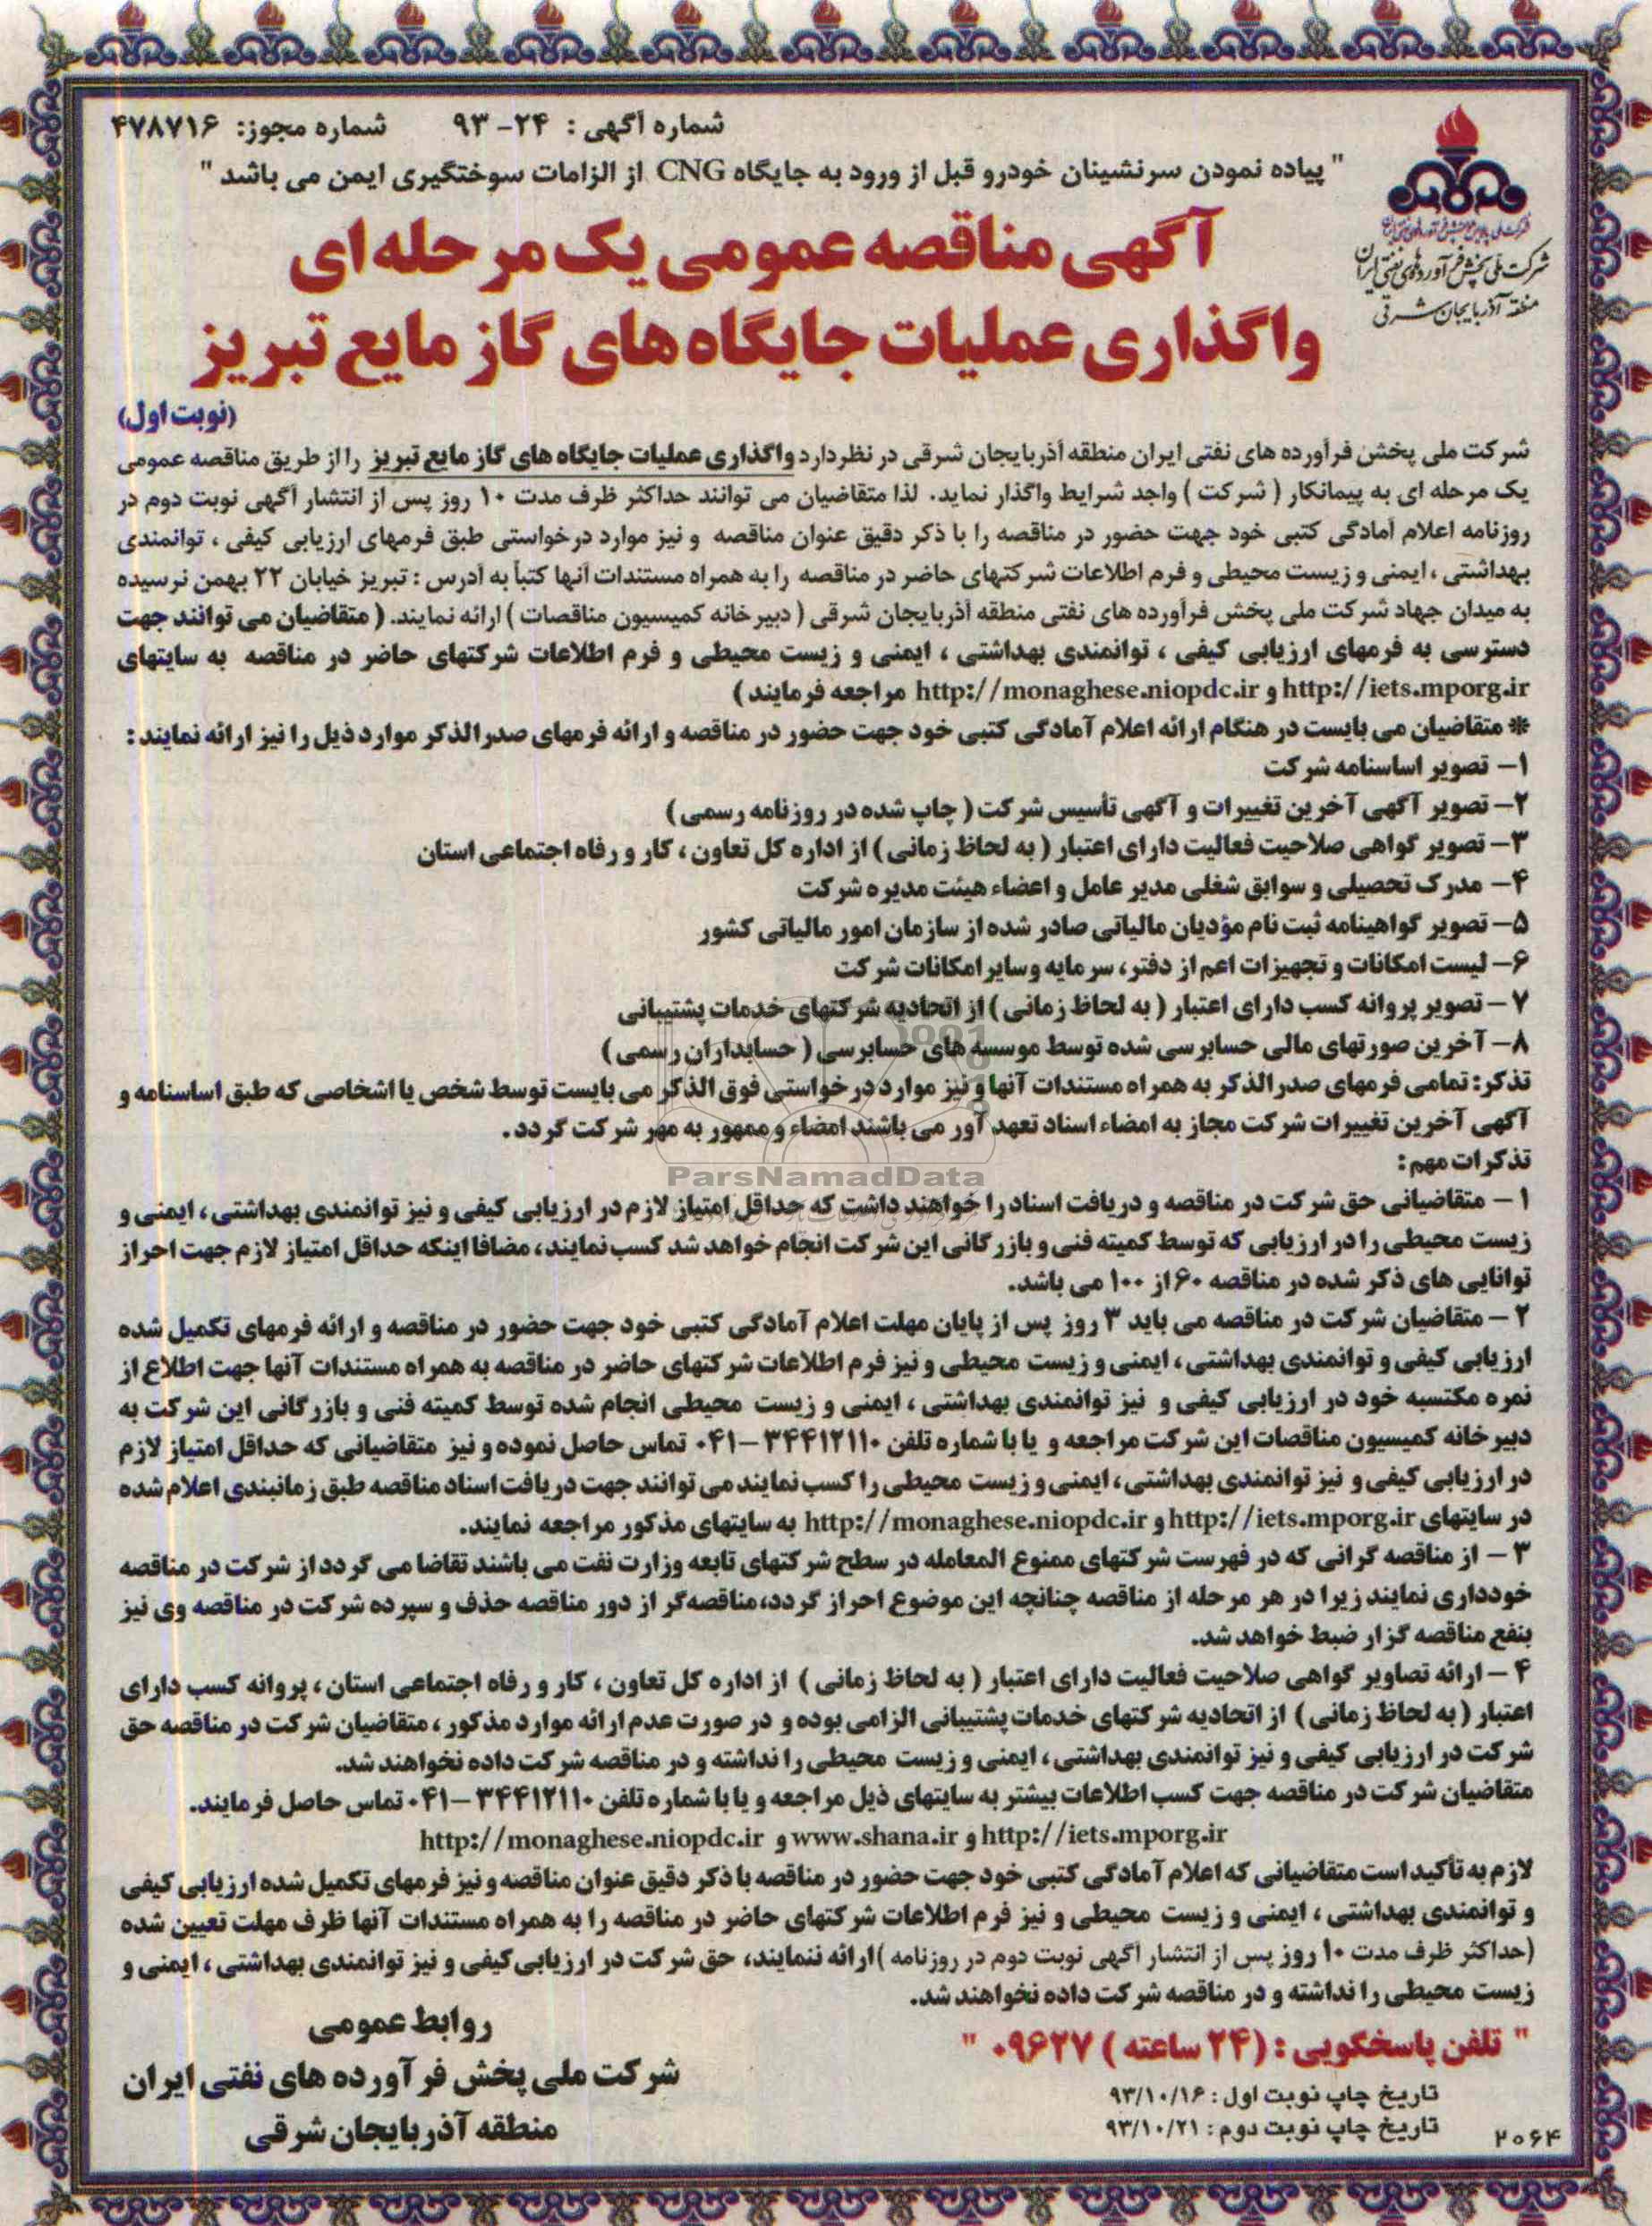 شماره آگهی : ۲۴- ۹۳ شماره مجوز: ۴۷۸۷۱۶
" پیاده نمودن سرنشینان خودرو قبل از ورود به جایگاه CNG از الزامات سوختگیری ایمن می باشد "
شرکت ملی پخش فرآورده های نفتی ایران
منطقه آذربایجان شرقی
آگهی مناقصه عمومی یک مرحله ای
واگذاری عملیات جایگاه های گاز مایع تبریز
(نوبت اول)
شرکت ملی پخش فرآورده های نفتی ایران منطقه آذربایجان شرقی در نظر دارد واگذاری عملیات جایگاه های گاز مایع تبریز را از طریق مناقصه عمومی
یک مرحله ای به پیمانکار ( شرکت ) واجد شرایط واگذار نماید. لذا متقاضیان می توانند حداکثر ظرف مدت ۱۰ روز پس از انتشار آگهی نوبت دوم در
روزنامه اعلام آمادگی کتبی خود جهت حضور در مناقصه را با ذکر دقیق عنوان مناقصه و نیز موارد درخواستی طبق فرمهای ارزیابی کیفی ، توانمندی
بهداشتی ، ایمنی و زیست محیطی و فرم اطلاعات شرکتهای حاضر در مناقصه را به همراه مستندات آنها کتباً به آدرس : تبریز خیابان ۲۲ بهمن نرسیده
به میدان جهاد شرکت ملی پخش فرآورده های نفتی منطقه آذربایجان شرقی ( دبیرخانه کمیسیون مناقصات ) ارائه نمایند. ( متقاضیان می توانند جهت
دسترسی به فرمهای ارزیابی کیفی ، توانمندی بهداشتی ، ایمنی و زیست محیطی و فرم اطلاعات شرکتهای حاضر در مناقصه به سایتهای
http://iets.mporg.ir و http://monaghese.niopdc.ir مراجعه فرمایند )
* متقاضیان می بایست در هنگام ارائه اعلام آمادگی کتبی خود جهت حضور در مناقصه و ارائه فرمهای صدرالذکر موارد ذیل را نیز ارائه نمایند :
۱- تصویر اساسنامه شرکت
۲- تصویر آگهی آخرین تغییرات و آگهی تأسیس شرکت ( چاپ شده در روزنامه رسمی )
۳- تصویر گواهی صلاحیت فعالیت دارای اعتبار ( به لحاظ زمانی ) از اداره کل تعاون ، کار و رفاه اجتماعی استان
۴- مدرک تحصیلی و سوابق شغلی مدیر عامل و اعضاء هیئت مدیره شرکت
۵- تصویر گواهینامه ثبت نام مؤدیان مالیاتی صادر شده از سازمان امور مالیاتی کشور
۶- لیست امکانات و تجهیزات اعم از دفتر، سرمایه و سایر امکانات شرکت
۷ - تصویر پروانه کسب دارای اعتبار ( به لحاظ زمانی ) از اتحادیه شرکتهای خدمات پشتیبانی
۸- آخرین صورتهای مالی حسابرسی شده توسط موسسه های حسابرسی ( حسابداران رسمی )
تذکر: تمامی فرمهای صدرالذکر به همراه مستندات آنها و نیز موارد درخواستی فوق الذکر می بایست توسط شخص یا اشخاصی که طبق اساسنامه و
آگهی آخرین تغییرات شرکت مجاز به امضاء اسناد تعهد آور می باشند امضاء و ممهور به مهر شرکت گردد .
ParsNamadData
تذکرات مهم :
۱ - متقاضیانی حق شرکت در مناقصه و دریافت اسناد را خواهند داشت که حداقل امتیاز لازم در ارزیابی کیفی و نیز توانمندی بهداشتی ، ایمنی و
زیست محیطی را در ارزیابی که توسط کمیته فنی و بازرگانی این شرکت انجام خواهد شد کسب نمایند، مضافا اینکه حداقل امتیاز لازم جهت احراز
توانایی های ذکر شده در مناقصه ۶۰ از ۱۰۰ می باشد.
۲ - متقاضیان شرکت در مناقصه می باید ۳ روز پس از پایان مهلت اعلام آمادگی کتبی خود جهت حضور در مناقصه و ارائه فرمهای تکمیل شده
ارزیابی کیفی و توانمندی بهداشتی ، ایمنی و زیست محیطی و نیز فرم اطلاعات شرکتهای حاضر در مناقصه به همراه مستندات آنها جهت اطلاع از
نمره مکتسبه خود در ارزیابی کیفی و نیز توانمندی بهداشتی ، ایمنی و زیست محیطی انجام شده توسط کمیته فنی و بازرگانی این شرکت به
دبیرخانه کمیسیون مناقصات این شرکت مراجعه و یا با شماره تلفن ۳۴۴۱۲۱۱۰ -۰۴۱ تماس حاصل نموده و نیز متقاضیانی که حداقل امتیاز لازم
در ارزیابی کیفی و نیز توانمندی بهداشتی ، ایمنی و زیست محیطی را کسب نمایند می توانند جهت دریافت اسناد مناقصه طبق زمانبندی اعلام شده
در سایتهای http://iets.mporg.ir و http://monaghese.niopdc.ir به سایتهای مذکور مراجعه نمایند.
۳ - از مناقصه گرانی که در فهرست شرکتهای ممنوع المعامله در سطح شرکتهای تابعه وزارت نفت می باشند تقاضا می گردد از شرکت در مناقصه
خودداری نمایند زیرا در هر مرحله از مناقصه چنانچه این موضوع احراز گردد،مناقصه‌گر از دور مناقصه حذف و سپرده شرکت در مناقصه وی نیز
بنفع مناقصه گزار ضبط خواهد شد.
۴ - ارائه تصاویر گواهی صلاحیت فعالیت دارای اعتبار ( به لحاظ زمانی ) از اداره کل تعاون ، کار و رفاه اجتماعی استان ، پروانه کسب دارای
اعتبار ( به لحاظ زمانی ) از اتحادیه شرکتهای خدمات پشتیبانی الزامی بوده و در صورت عدم ارائه موارد مذکور ، متقاضیان شرکت در مناقصه حق
شرکت در ارزیابی کیفی و نیز توانمندی بهداشتی ، ایمنی و زیست محیطی را نداشته و در مناقصه شرکت داده نخواهند شد.
متقاضیان شرکت در مناقصه جهت کسب اطلاعات بیشتر به سایتهای ذیل مراجعه و یا با شماره تلفن ۳۴۴۱۲۱۱۰ -۰۴۱ تماس حاصل فرمایند.
http://iets.mporg.ir و www.shana.ir و http://monaghese.niopdc.ir
لازم به تأکید است متقاضیانی که اعلام آمادگی کتبی خود جهت حضور در مناقصه با ذکر دقیق عنوان مناقصه و نیز فرمهای تکمیل شده ارزیابی کیفی
و توانمندی بهداشتی ، ایمنی و زیست محیطی و نیز فرم اطلاعات شرکتهای حاضر در مناقصه را به همراه مستندات آنها ظرف مهلت تعیین شده
(حداکثر ظرف مدت ۱۰ روز پس از انتشار آگهی نوبت دوم در روزنامه )ارائه ننمایند، حق شرکت در ارزیابی کیفی و نیز توانمندی بهداشتی ، ایمنی و
زیست محیطی را نداشته و در مناقصه شرکت داده نخواهند شد.
" تلفن پاسخگویی : (۲۴ ساعته ) ۰۹۶۲۷ "
تاریخ چاپ نوبت اول : ۹۳/۱۰/۱۶
تاریخ چاپ نوبت دوم : ۹۳/۱۰/۲۱
۲۰۶۴
روابط عمومی
شرکت ملی پخش فرآورده های نفتی ایران
منطقه آذربایجان شرقی